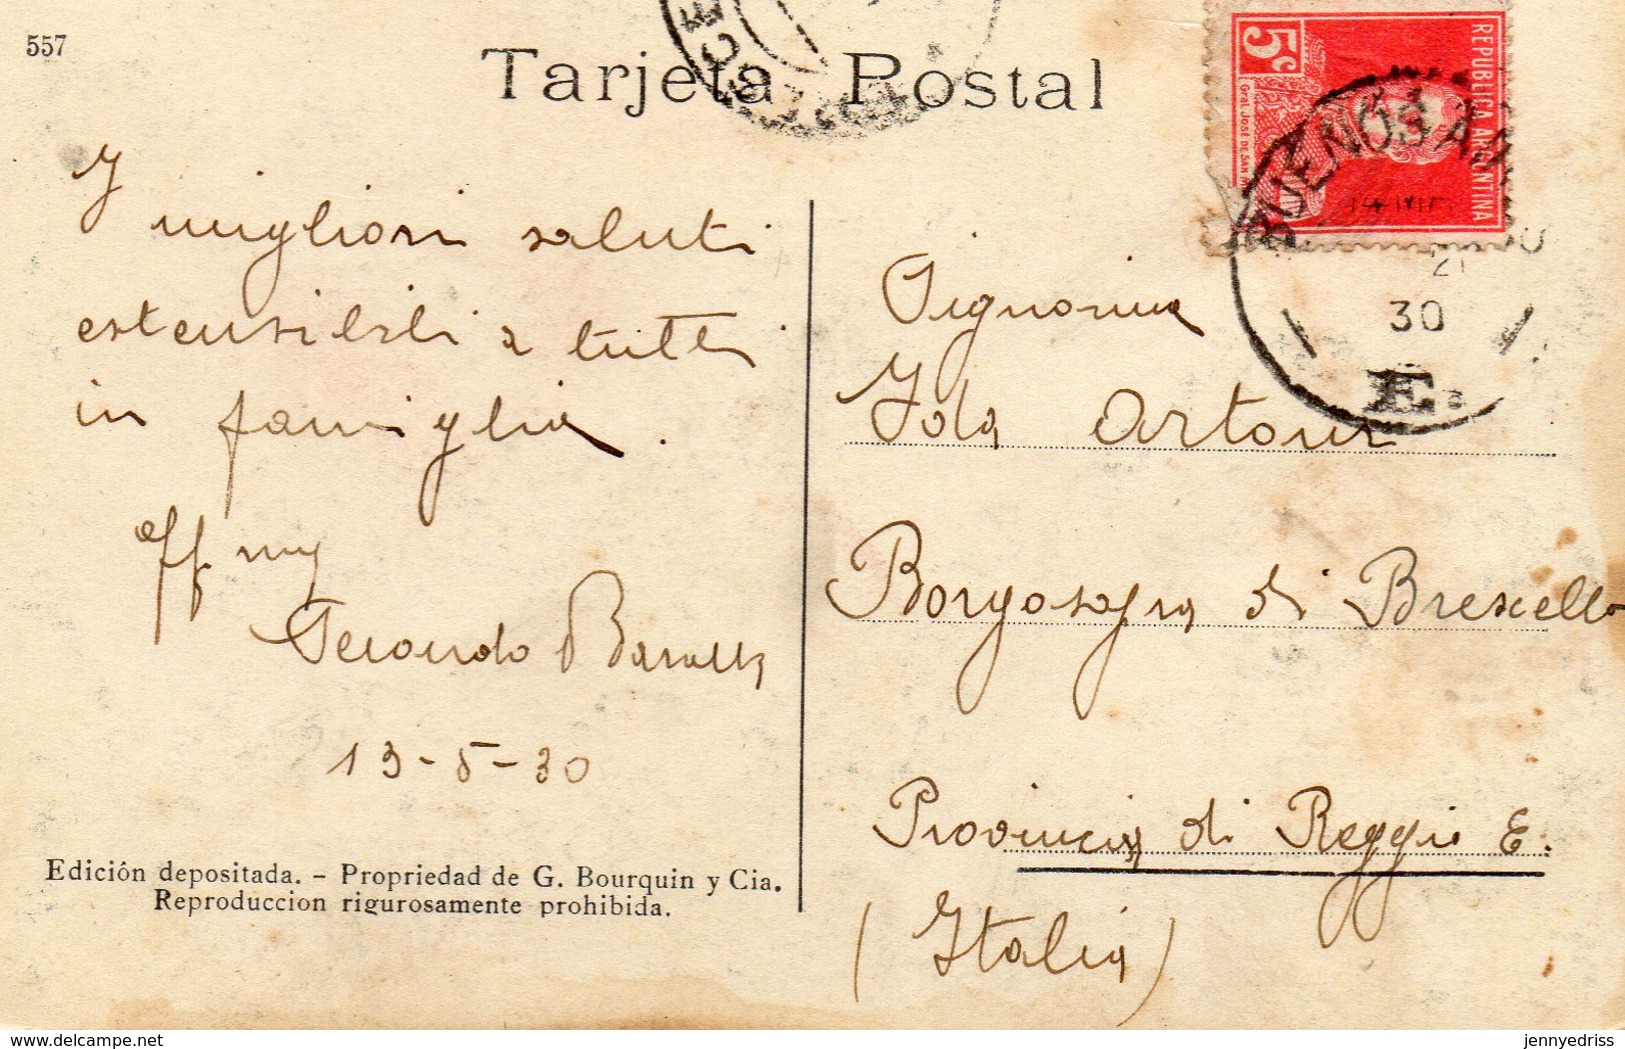 557
Tarjeta Postal
5c
REPUBLICA ARGENTINA
Gral. José de San M
BUENOS AI
30
E.
I
migliori saluti
estensibili a tutti
in famiglia.
Aff. my
Secondo
13-5-30
Signorina
Iola Artoni
Borgosopra di Brescello
Provincia di Reggio E.
(Italia)
Edición depositada. - Propriedad de G. Bourquin y Cia.
Reproduccion rigurosamente prohibida.
delcampe.net
jennyedriss